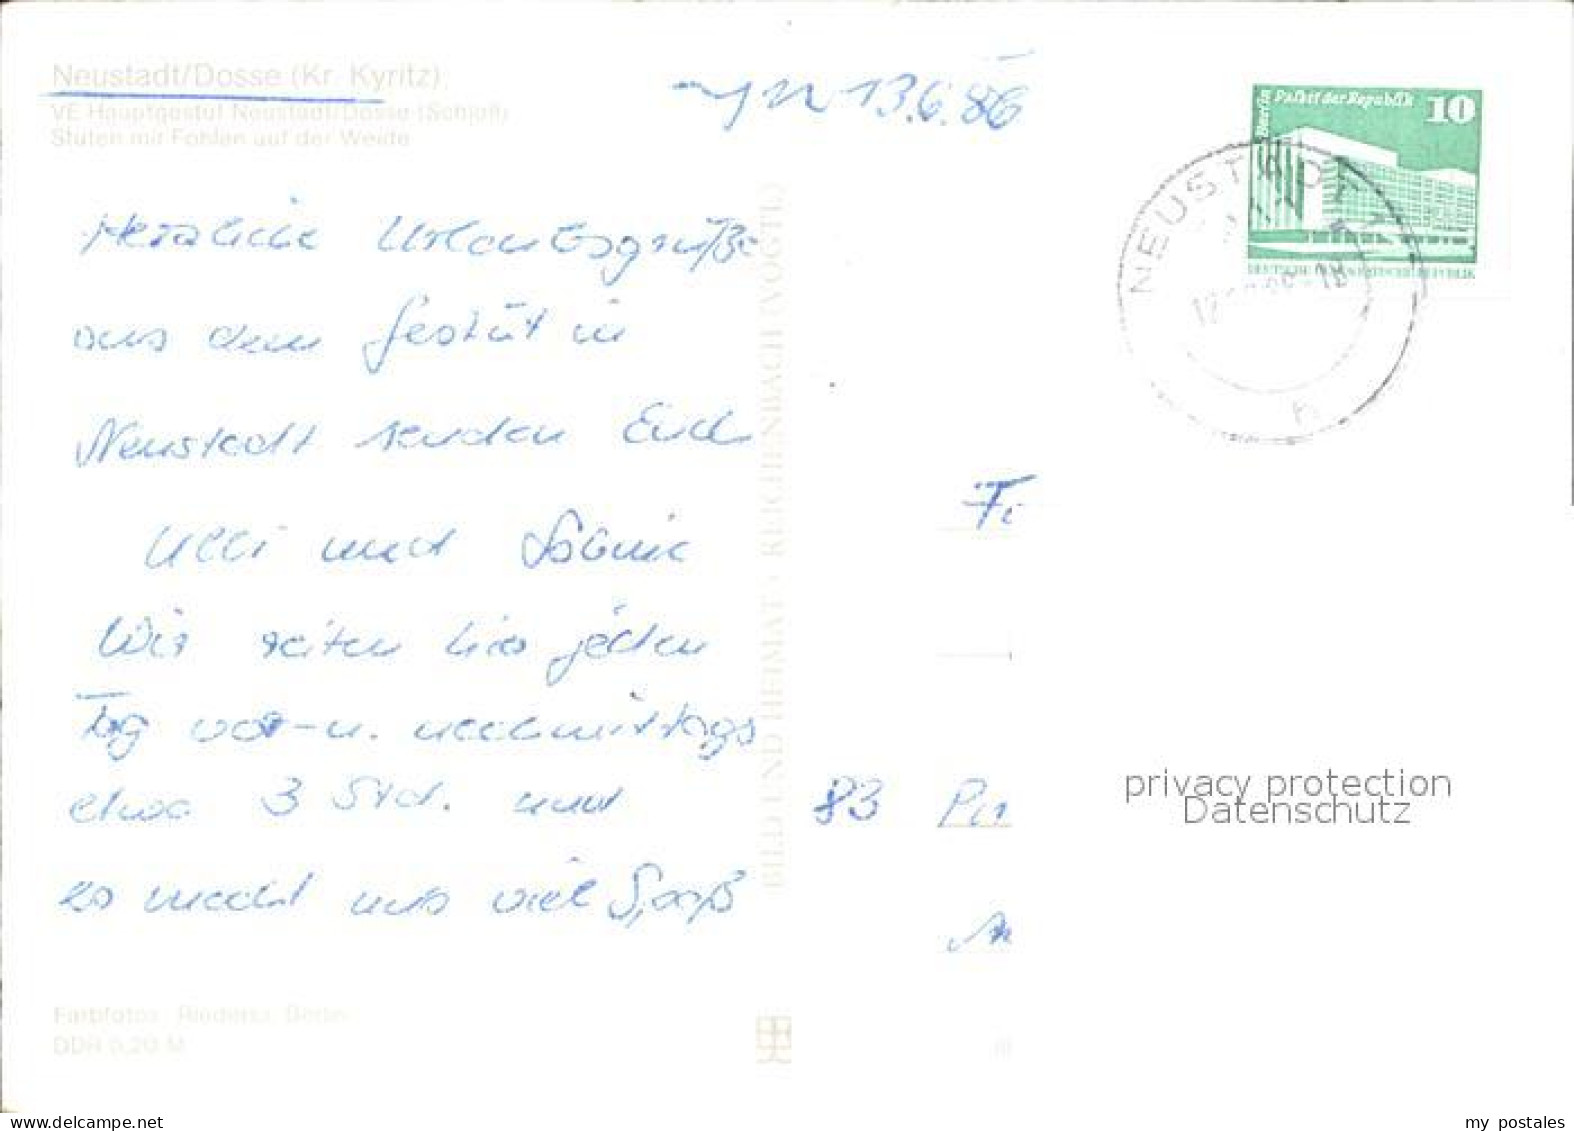 Neustadt/Dosse (Kr. Kyritz)
VE Hauptgestüt Neustadt/Dosse (Schloß)
Stuten mit Fohlen auf der Weide
13.6.86
Herzliche Urlaubsgrüße
aus dem Gestüt in
Neustadt senden Euch
Ulli und Sabine
Wir reiten hier jeden
Tag vor- u. nachmittags
etwa 3 Std. und
es macht uns viel Spaß
Farbfotos:
DDR 0,20 M
BILD UND HEIMAT · REICHENBACH (VOGTL)
Berlin Palast der Republik 10
DEUTSCHE DEMOKRATISCHE REPUBLIK
NEUSTADT
83
privacy protection
Datenschutz
my postales
www.delcampe.net